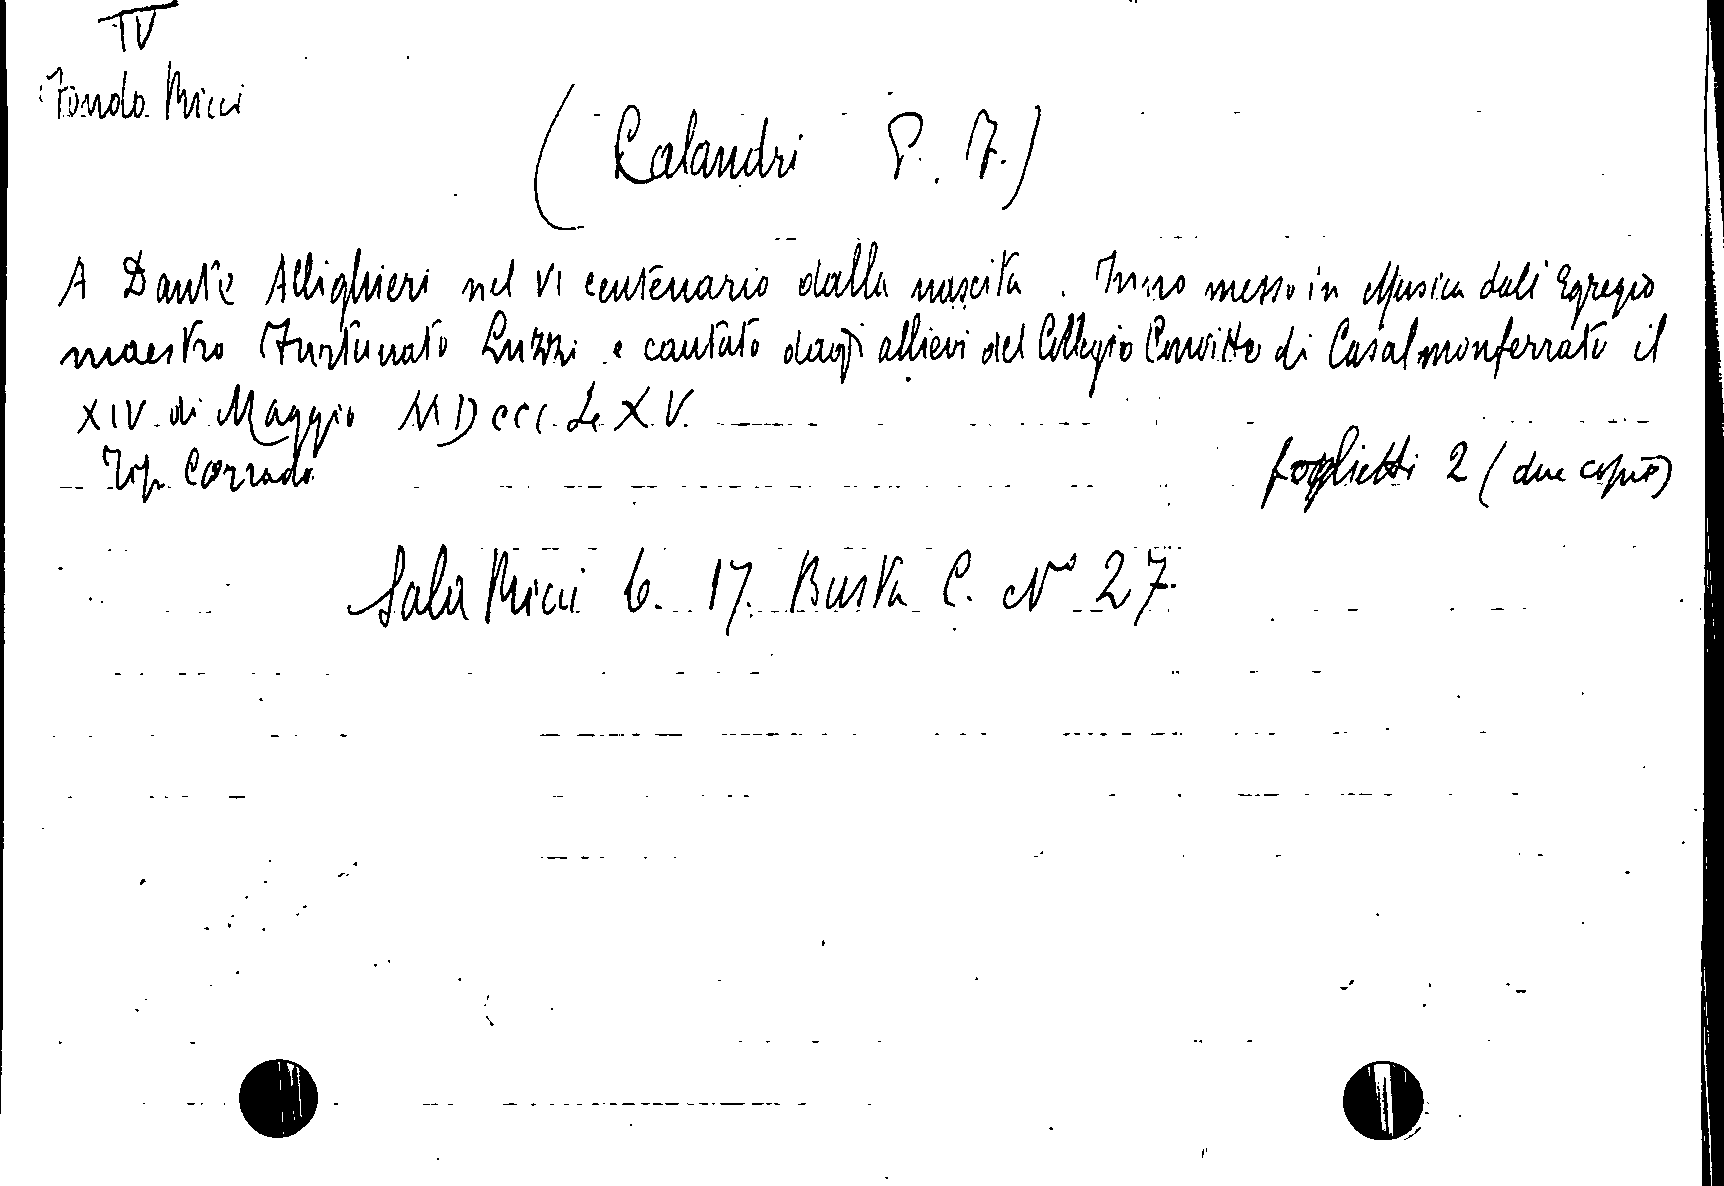 IV
Fondo Ricci
(Calandri P. F.)
A Dante Allighieri nel VI centenario dalla nascita. Inno messo in Musica dall'Egregio
maestro Furtunato Luzzi e cantato dagli allievi del Collegio Convitto di Casalmonferrato il
XIV di Maggio MDCCCLXV.
Tip. Corrado
foglietti 2 (due copie)
Sala Ricci 6. 17. Busta C. N° 27.